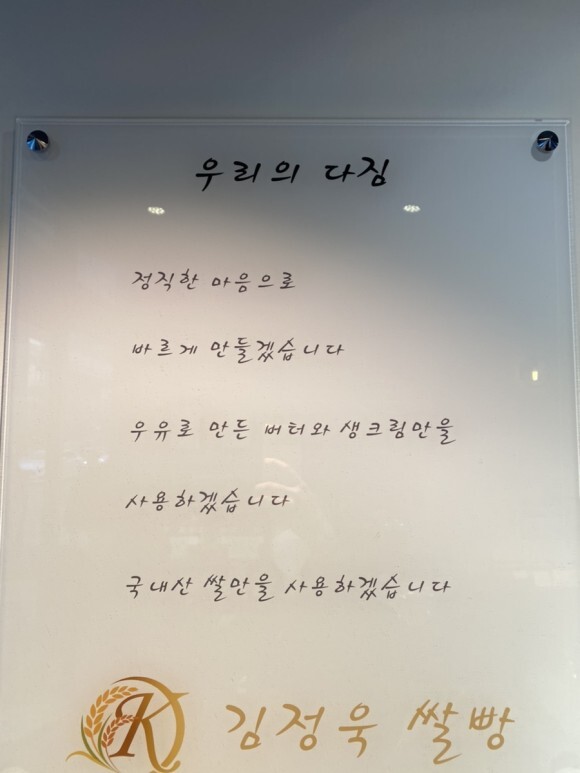 우리의 다짐
정직한 마음으로
바르게 만들겠습니다
우유로 만든 버터와 생크림만을
사용하겠습니다
국내산 쌀만을 사용하겠습니다
K 김정욱 쌀빵